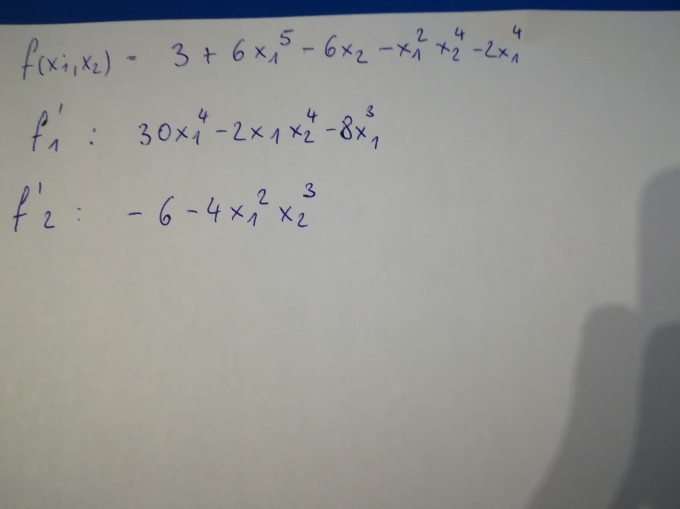 f(x₁,x₂) = 3 + 6x₁⁵ - 6x₂ - x₁²x₂⁴ - 2x₁⁴
f'₁ : 30x₁⁴ - 2x₁x₂⁴ - 8x₁³
f'₂ : - 6 - 4x₁²x₂³